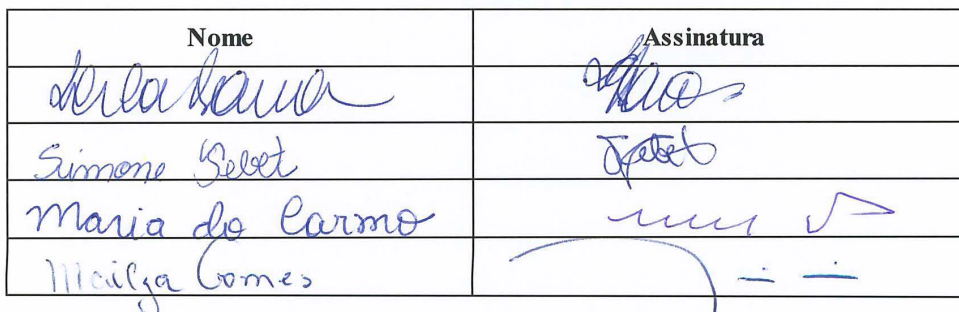 Nome Assinatura
Leila Barros
Simone Tebet Tebet
Maria do Carmo
Mailza Gomes